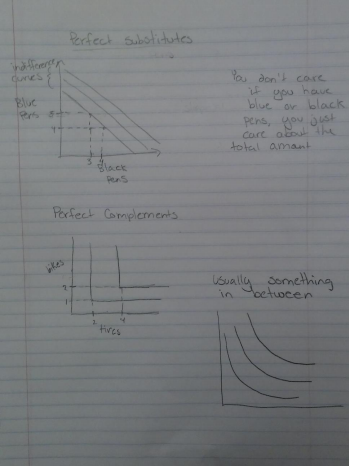 Perfect Substitutes
Indifference
curves {
Blue
Pens
5
4
3
4
Black
Pens
You don't care
if you have
blue or black
pens, you just
care about the
total amount
Perfect Complements
Bikes
2
1
2
4
tires
Usually something
in between